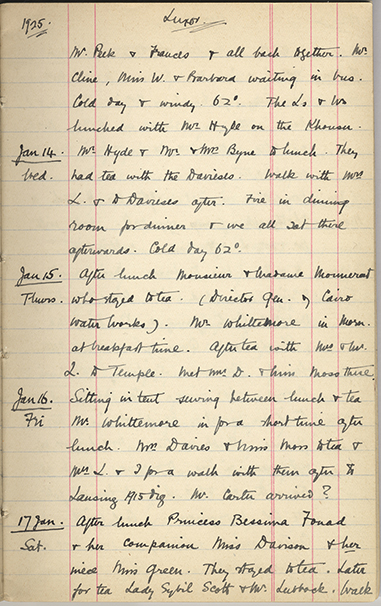 1925. Luxor.
Mr Peek & Frances & all back together. Mr
Cline, Miss W. & Barbara waiting in bus.
Cold day & windy. 62°. The Ls & Ws
lunched with Mr Hyde on the Khonsu.
Jan 14. Mr Hyde & Mr & Mrs Byne to lunch. They
Wed. had tea with the Davieses. Walk with Mrs
L. & D Davieses after. Fire in dining
room for dinner & we all sat there
afterwards. Cold day 62°.
Jan 15. After lunch Monsieur & Madame Monnerat
Thurs. who stayed to tea. (Director Gen. of Cairo
Water Works). Mr Whittemore in morn.
at breakfast time. After tea with Mrs & Mr
L. to Temple. Met Mrs D. & Miss Moss there.
Jan 16. Sitting in tent sewing between lunch & tea
Fri Mr Whittemore in for a short time after
lunch. Mrs Davies & Miss Moss to tea &
Mrs L. & I for a walk with them after to
Lansing 1915 dig. Mr Carter arrived?
17 Jan. After lunch Princess Bessima Fouad
Sat. & her companion Miss Davison & her
niece Miss Green. They stayed to tea. Later
for tea Lady Sybil Scott & Mr Lubbock. Walk